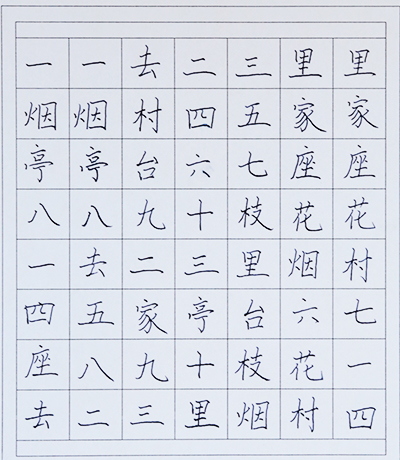 一一去二三里里
烟烟村四五家家
亭亭台六七座座
八八九十枝花花
一去二三里烟村
四五家亭台六七
座八九十枝花一
去二三里烟村四